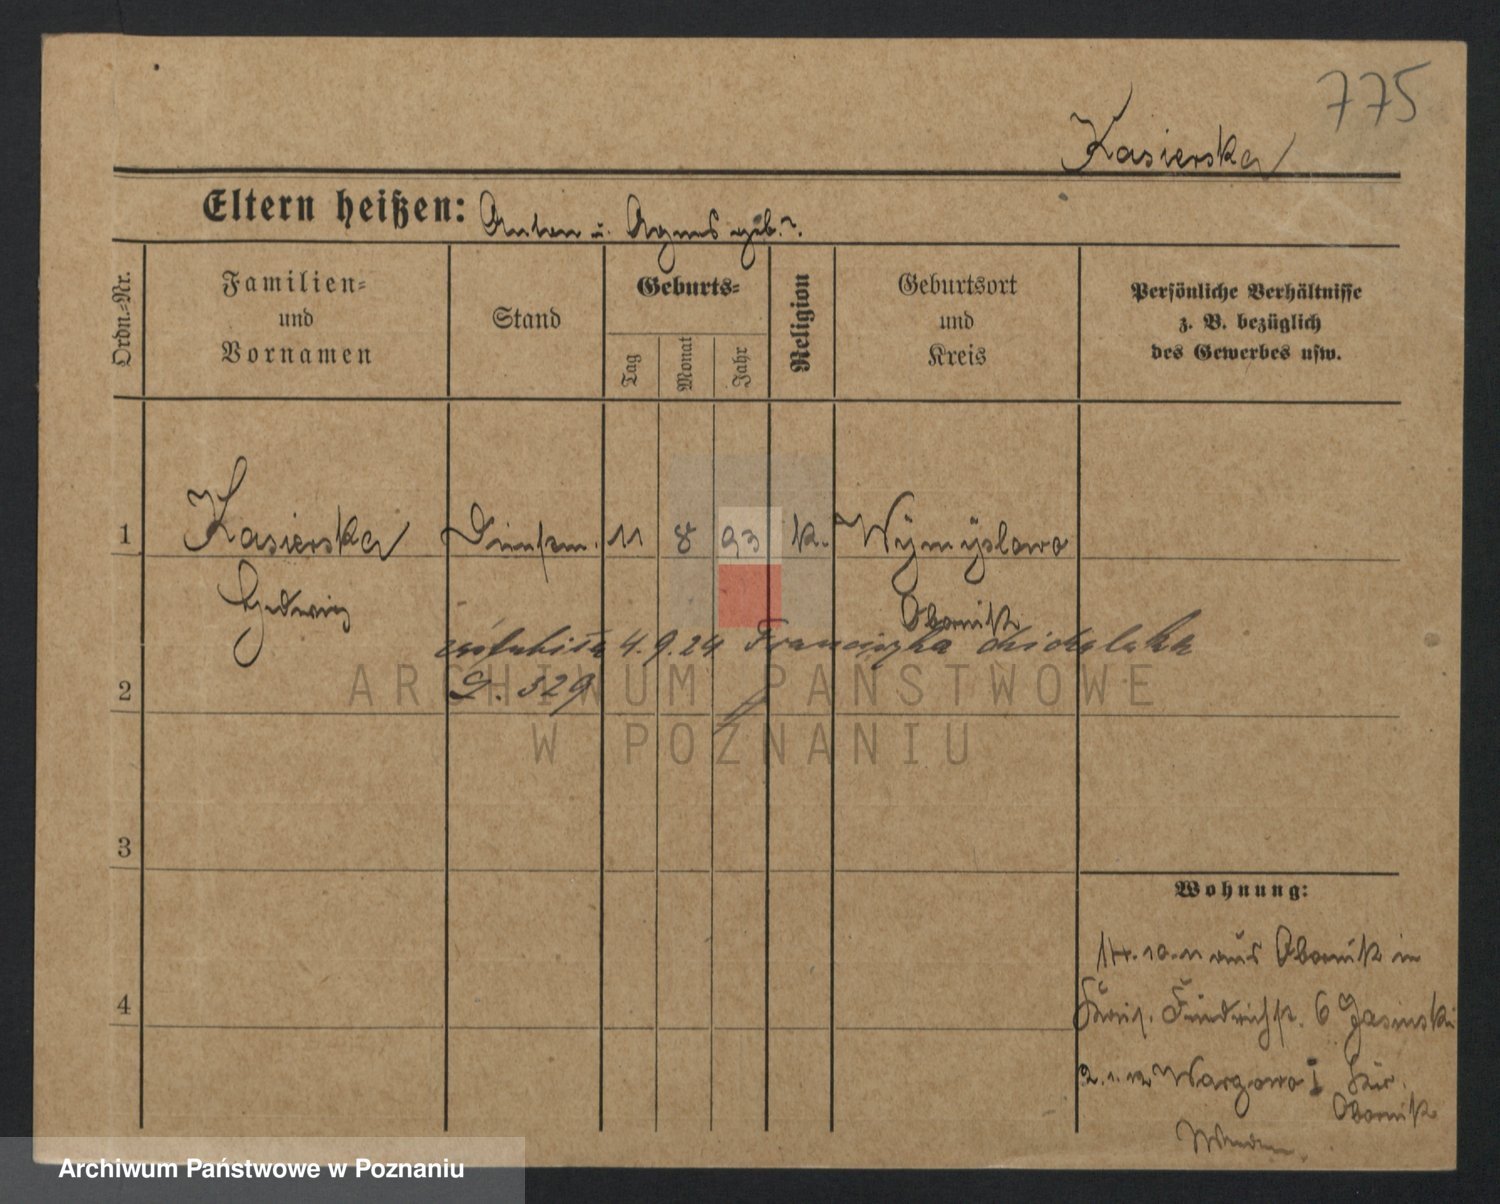 775
Kasierska
Eltern heißen: Anton u. Agnes geb. ?.
Ordn.-Nr.
Familien-
und
Vornamen
Stand
Geburts-
Tag
Monat
Jahr
Religion
Geburtsort
und
Kreis
Persönliche Verhältnisse
z. B. bezüglich
des Gewerbes usw.
1 Kasierska Dienstm. 11 8 93 k. Wymyslowo
Hedwig
Obornik
4.9.24 Franciszka
2 329
3
4
Wohnung:
14.10.11 aus Obornik in
Friedrichstr. 6 Jasinski
2.1.12 Wargowo I Kr.
Obornik
ARCHIWUM PAŃSTWOWE
W POZNANIU
Archiwum Państwowe w Poznaniu